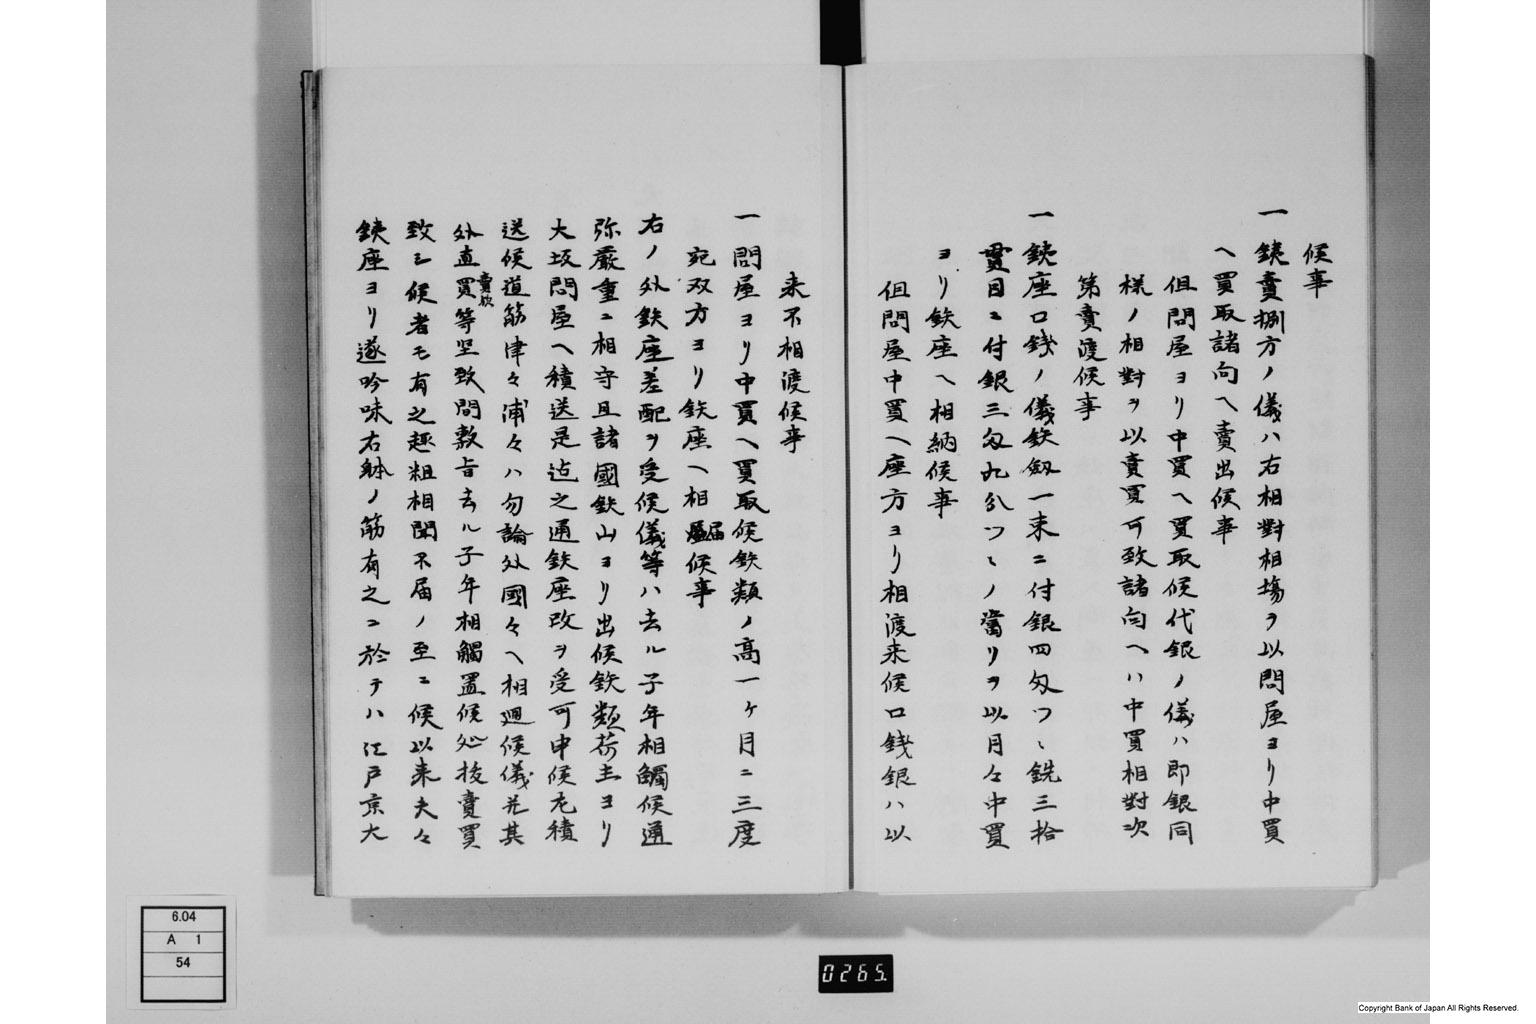 候事
一 鉄賣捌方ノ儀ハ右相對相場ヲ以問屋ヨリ中買
ヘ買取諸向ヘ賣出候事
但問屋ヨリ中買ヘ買取候代銀ノ儀ハ即銀同
様ノ相對ヲ以賣買可致諸向ヘハ中買相對次
第賣渡候事
一 鉄座口錢ノ儀鉄釼一束ニ付銀四匁ツヽ銑三拾
貫目ニ付銀三匁九分ツヽノ當リヲ以月々中買
ヨリ鉄座ヘ相納候事
但問屋中買ヘ座方ヨリ相渡来候口錢銀ハ以
来不相渡候事
一 問屋ヨリ中買ヘ買取候鉄類ノ高一ケ月ニ三度
宛双方ヨリ鉄座ヘ相届候事
右ノ外鉄座差配ヲ受候儀等ハ去ル子年相觸候通
弥嚴重ニ相守且諸國鉄山ヨリ出候鉄類荷主ヨリ
大坂問屋ヘ積送是迠之通鉄座改ヲ受可申候尤積
送候道筋津々浦々ハ勿論外國々ヘ相廻候儀并其
外直買等堅致間敷旨去ル子年相觸置候処抜賣買
賣欤
致シ候者モ有之趣粗相聞不届ノ至ニ候以来夫々
鉄座ヨリ遂吟味右躰ノ筋有之ニ於テハ江戸京大
6.04
A 1
54
0265
Copyright Bank of Japan All Rights Reserved.